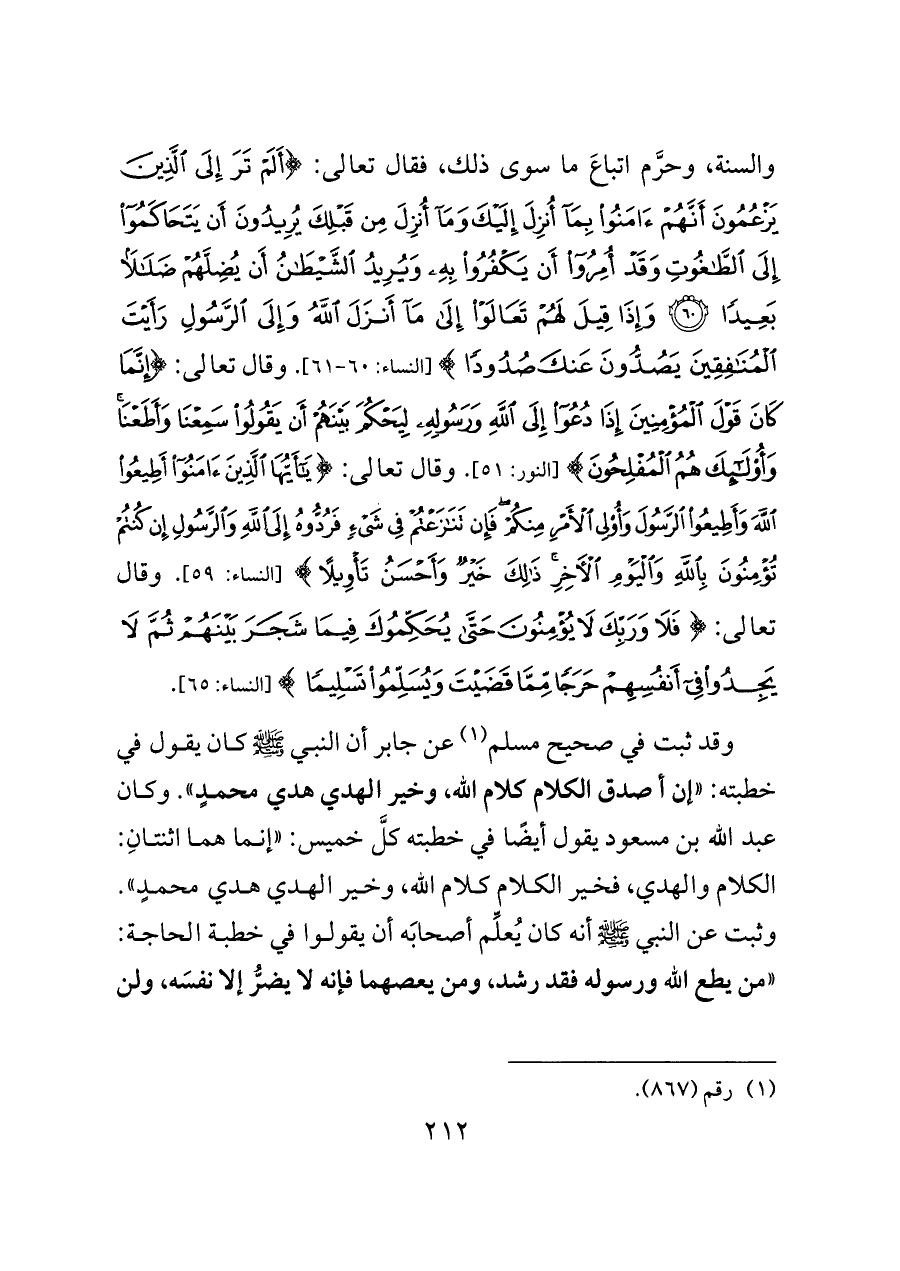 والسنة، وحرَّم اتباعَ ما سوى ذلك، فقال تعالى: ﴿أَلَمۡ تَرَ إِلَى ٱلَّذِينَ
يَزۡعُمُونَ أَنَّهُمۡ ءَامَنُواْ بِمَآ أُنزِلَ إِلَيۡكَ وَمَآ أُنزِلَ مِن قَبۡلِكَ يُرِيدُونَ أَن يَتَحَاكَمُوٓاْ
إِلَى ٱلطَّـٰغُوتِ وَقَدۡ أُمِرُوٓاْ أَن يَكۡفُرُواْ بِهِۦ وَيُرِيدُ ٱلشَّيۡطَـٰنُ أَن يُضِلَّهُمۡ ضَلَـٰلَۢا
بَعِيدًا ۝٦٠ وَإِذَا قِيلَ لَهُمۡ تَعَالَوۡاْ إِلَىٰ مَآ أَنزَلَ ٱللَّهُ وَإِلَى ٱلرَّسُولِ رَأَيۡتَ
ٱلۡمُنَـٰفِقِينَ يَصُدُّونَ عَنكَ صُدُودًا﴾ [النساء: ٦٠-٦١]. وقال تعالى: ﴿إِنَّمَا
كَانَ قَوۡلَ ٱلۡمُؤۡمِنِينَ إِذَا دُعُوٓاْ إِلَى ٱللَّهِ وَرَسُولِهِۦ لِيَحۡكُمَ بَيۡنَهُمۡ أَن يَقُولُواْ سَمِعۡنَا وَأَطَعۡنَاۚ
وَأُوْلَـٰٓئِكَ هُمُ ٱلۡمُفۡلِحُونَ﴾ [النور: ٥١]. وقال تعالى: ﴿يَـٰٓأَيُّهَا ٱلَّذِينَ ءَامَنُوٓاْ أَطِيعُواْ
ٱللَّهَ وَأَطِيعُواْ ٱلرَّسُولَ وَأُوْلِى ٱلۡأَمۡرِ مِنكُمۡۖ فَإِن تَنَـٰزَعۡتُمۡ فِى شَىۡءٍ فَرُدُّوهُ إِلَى ٱللَّهِ وَٱلرَّسُولِ إِن كُنتُمۡ
تُؤۡمِنُونَ بِٱللَّهِ وَٱلۡيَوۡمِ ٱلۡأَخِرِۚ ذَٰلِكَ خَيۡرٌ وَأَحۡسَنُ تَأۡوِيلًا﴾ [النساء: ٥٩]. وقال
تعالى: ﴿فَلَا وَرَبِّكَ لَا يُؤۡمِنُونَ حَتَّىٰ يُحَكِّمُوكَ فِيمَا شَجَرَ بَيۡنَهُمۡ ثُمَّ لَا
يَجِدُواْ فِىٓ أَنفُسِهِمۡ حَرَجًا مِّمَّا قَضَيۡتَ وَيُسَلِّمُواْ تَسۡلِيمًا﴾ [النساء: ٦٥].
وقد ثبت في صحيح مسلم(١) عن جابر أن النبي ﷺ كان يقول في
خطبته: «إن أصدق الكلام كلام الله، وخير الهدي هدي محمدٍ». وكان
عبد الله بن مسعود يقول أيضًا في خطبته كلَّ خميس: «إنما هما اثنتانِ:
الكلام والهدي، فخير الكلام كلام الله، وخير الهدي هدي محمدٍ».
وثبت عن النبي ﷺ أنه كان يُعلِّم أصحابَه أن يقولوا في خطبة الحاجة:
«من يطع الله ورسوله فقد رشد، ومن يعصهما فإنه لا يضرُّ إلا نفسَه، ولن
(١) رقم (٨٦٧).
٢١٢